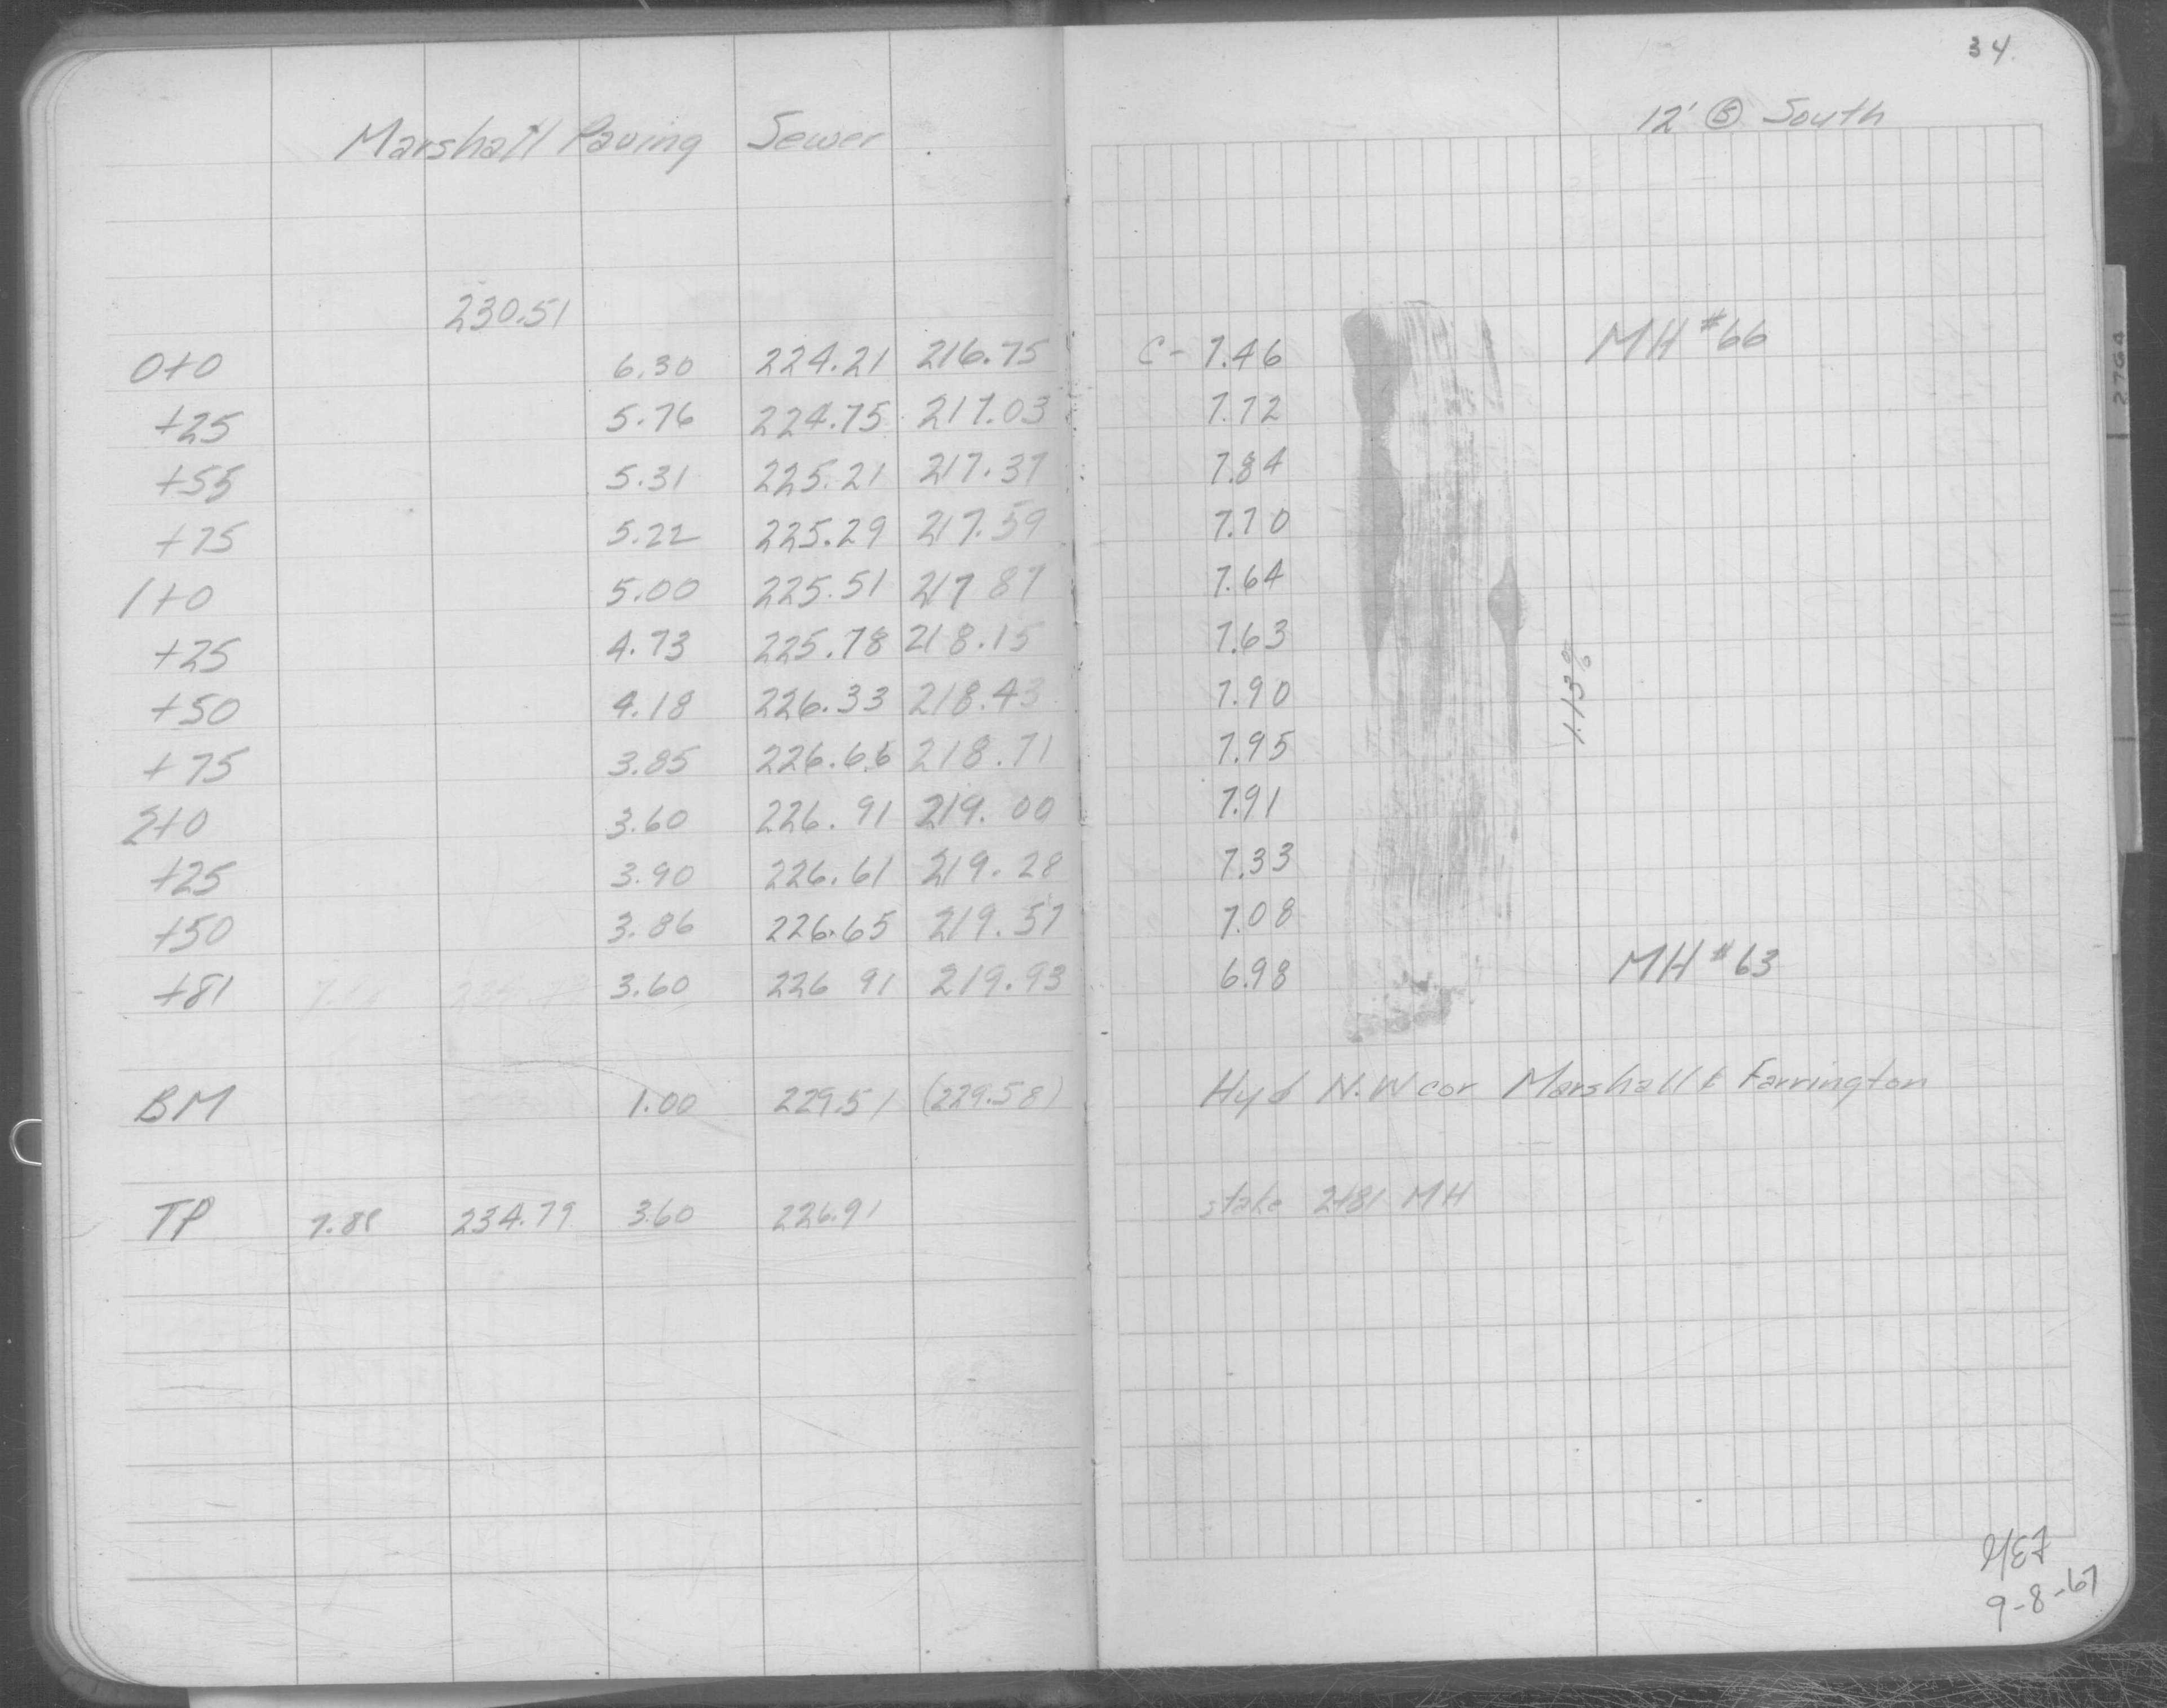 34.
Marshall Paving Sewer
12' Ⓑ South
230.51
0+0 6.30 224.21 216.75 C- 7.46 MH #66
+25 5.76 224.75 217.03 7.72
+55 5.31 225.21 217.37 7.84
+75 5.22 225.29 217.59 7.70
1+0 5.00 225.51 217 87 7.64
+25 4.73 225.78 218.15 7.63
+50 4.18 226.33 218.43 7.90
1.13%
+75 3.85 226.66 218.71 7.95
2+0 3.60 226.91 219.00 7.91
+25 3.90 226.61 219.28 7.33
+50 3.86 226.65 219.57 7.08
+81 3.60 226 91 219.93 6.98 MH #63
BM 1.00 229.51 (229.58) Hyd N.W cor Marshall & Farrington
TP 7.88 234.79 3.60 226.91 stake 2+81 MH
9-8-67
2764